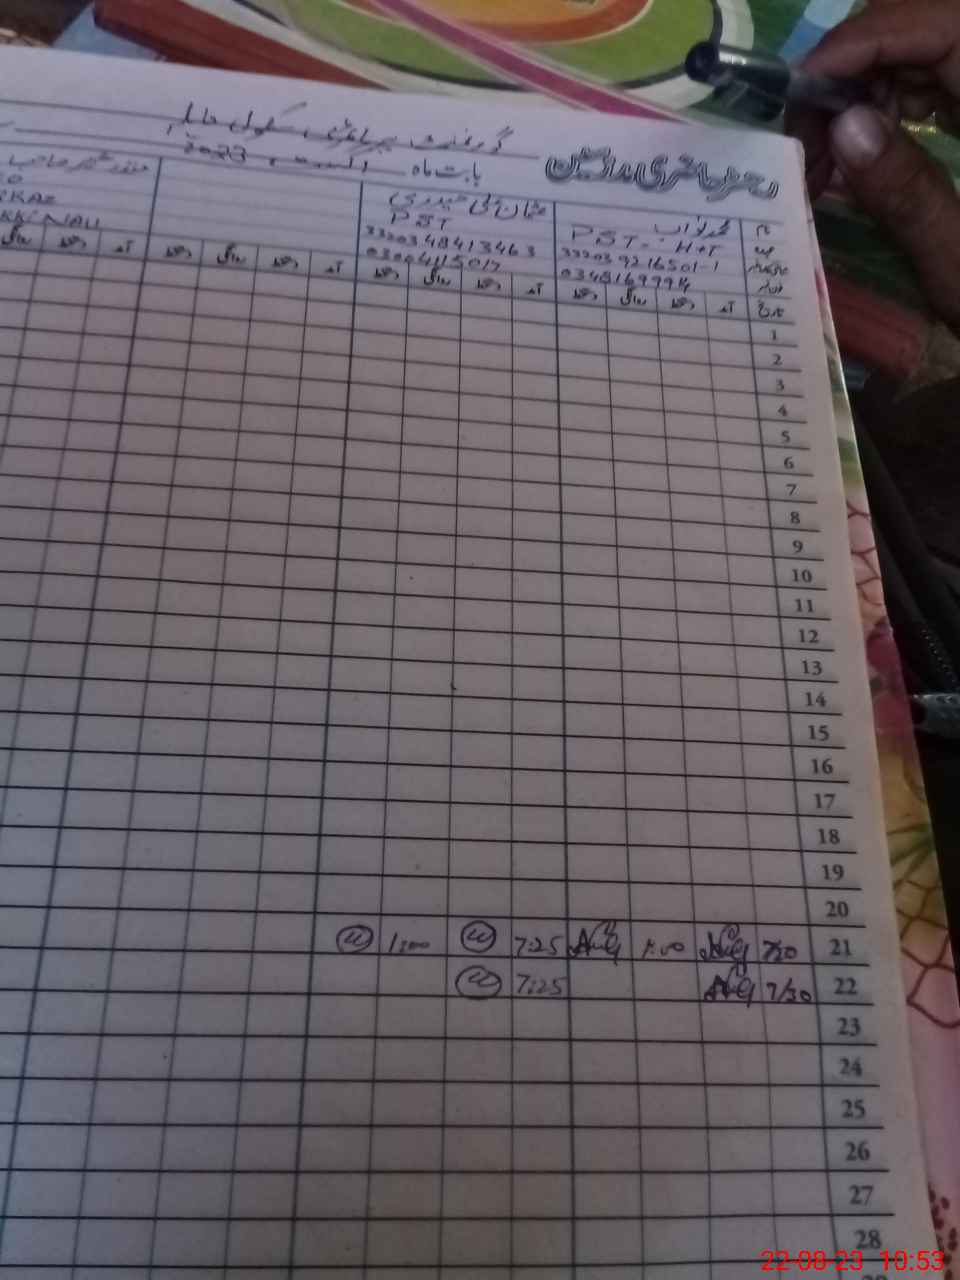 رجسٹر حاضری مدرسین
گورنمنٹ پرائمری سکول
بابت ماہ اگست 2023
نام محمد نواب
عہدہ PST. H.T
33203 9216501-1
فون نمبر 0348169994
عثمان علی حیدری
PST
33203 48413463
03004115017
صاحب
تاریخ آمد دستخط روانگی دستخط آمد دستخط روانگی دستخط آمد دستخط روانگی دستخط آمد دستخط روانگی
1
2
3
4
5
6
7
8
9
10
11
12
13
14
15
16
17
18
19
20
21 7:20 1:00 7:25 1:00
22 7:30 7:25
23
24
25
26
27
28
22-08-23 10:53